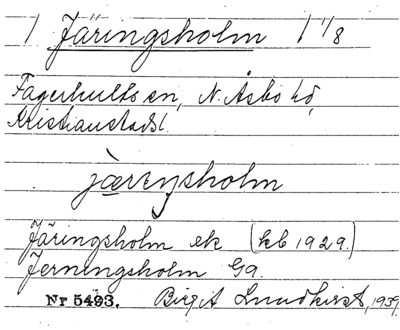 1 Järingsholm 1 1/8
Fagerhults sn, N. Åsbo hd,
Kristianstads l.
jærıŋsholm
Järingsholm ek (kb 1929.)
Jerningsholm Ga.
Nr 5493. Birgit Lundkvist, 1939.